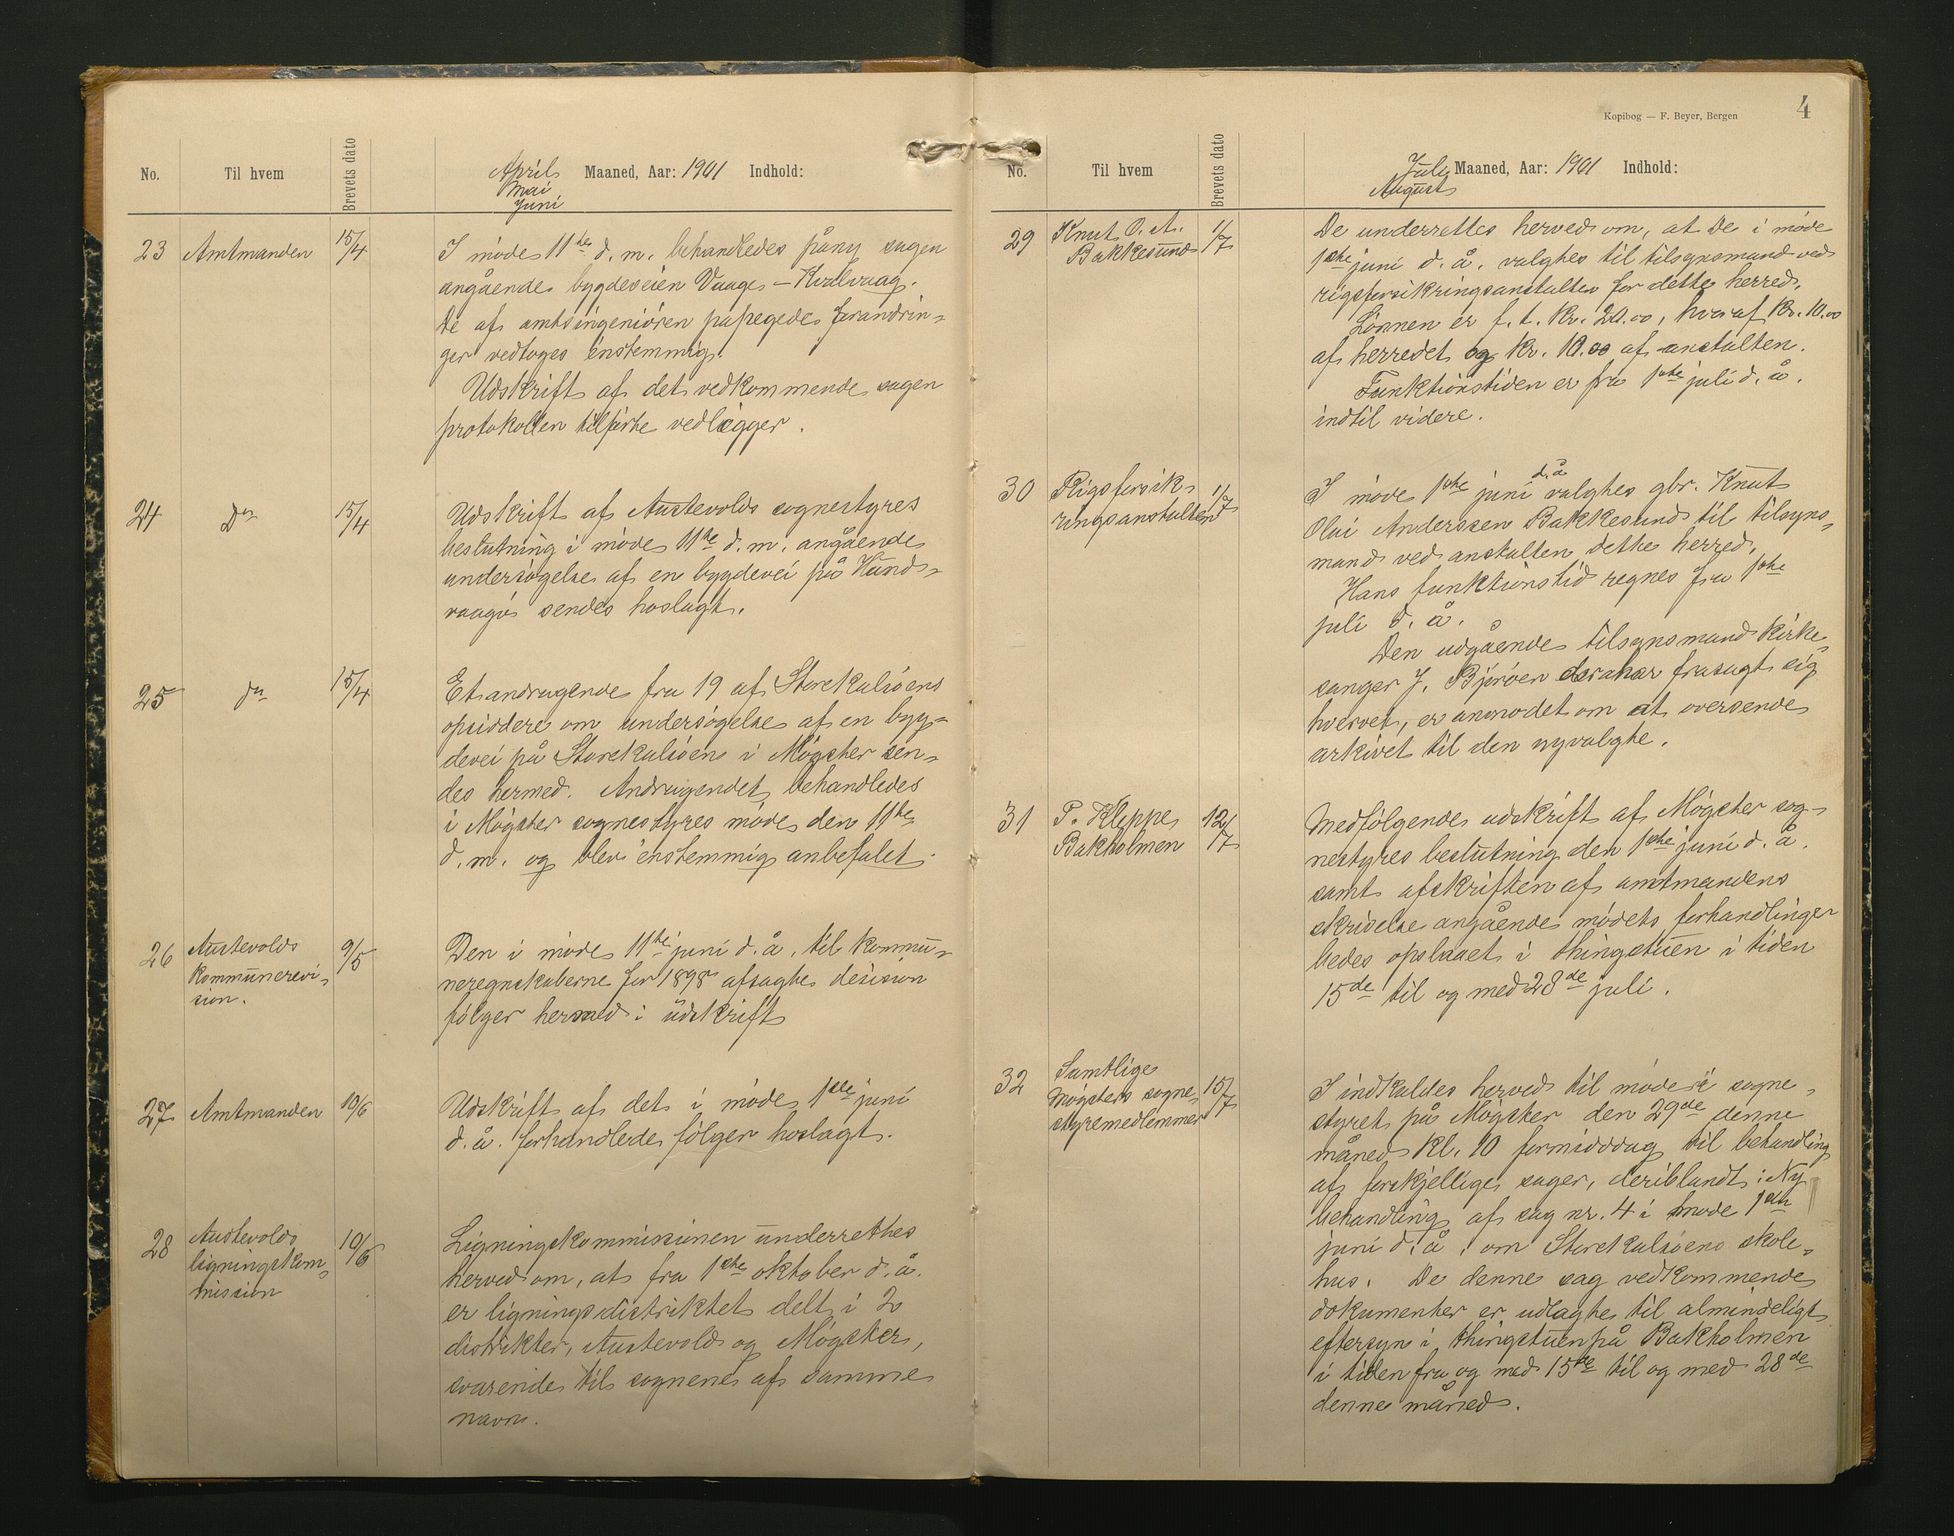 No. Til hvem Brevets dato April Mai Juni Maaned, Aar: 1901 Indhold:
23 Amtmanden 15/4 I møde 11te d. m. behandledes påny sagen
angående bygdeveien Vaage - Kvalvaag.
De af amtsingeniøren påpegede forandrin-
ger vedtoges enstemmig.
Udskrift af det vedkommende sagen
protokollen tilførte vedlægger.
24 Do 15/4 Udskrift af Austevolds sognestyres
beslutning i møde 11te d. m. angående
undersøgelse af en bygdevei på Hunds-
vaagø sendes hoslagt.
25 do 15/4 Et andragende fra 19 af Storekalsøens
opsiddere om undersøgelse af en byg-
devei på Storekalsøen i Møgster sen-
des hermed. Andragendet behandledes
i Møgster sognestyres møde den 11te
d. m. og blev enstemmig anbefalet.
26 Austevolds
kommunerevi-
sion. 9/5 Den i møde 11te juni d. å. til kommu-
neregnskaberne for 1898 afsagte desision
følger herved i udskrift
27 Amtmanden 10/6 Udskrift af det i møde 1ste juni
d. å. forhandlede følger hoslagt.
28 Austevolds
ligningskom-
mission 10/6 Ligningskommissionen underrettes
herved om, at fra 1ste oktober d. å.
er ligningsdistriktet delt i 2
distrikter, Austevold og Møgster,
svarende til sognene af samme
navn.
Kopibog — F. Beyer, Bergen 4
No. Til hvem Brevets dato Juli August Maaned, Aar: 1901 Indhold:
29 Knut O. A.
Bakkesund 1/7 De underrettes herved om, at De i møde
1ste juni d. å. valgtes til tilsynsmand ved
rigsforsikringsanstalten for dette herred.
Lønnen er f. t. kr. 20.00, hvoraf kr. 10.00
af herredet og kr. 10.00 af anstalten.
Funktionstiden er fra 1ste juli d. å.
indtil videre.
30 Rigsforsik-
ringsanstalten 1/7 I møde 1ste juni d. å valgtes gbr. Knut
Olai Anderssen Bakkesund til tilsyns-
mand ved anstalten dette herred.
Hans funktionstid regnes fra 1ste
juli d. å.
Den udgående tilsynsmand kirke-
sanger J. Bjørøen har frasagt sig
hvervet, er anmodet om at oversende
arkivet til den nyvalgte.
31 P. Kleppe
Bakholmen 12/7 Medfølgende udskrift af Møgster sog-
nestyres beslutning den 1ste juni d. å.
samt afskriften af amtmandens
skrivelse angående mødets forhandlinger
bedes opslaaet i thingstuen i tiden
15de til og med 28de juli.
32 Samtlige
Møgsters sogne-
styremedlemmer 15/7 I indkaldes herved til møde i sogne-
styret på Møgster den 29de denne
måned kl. 10 formiddag til behandling
af forskjellige sager, deriblandt: Ny
behandling af sag nr. 4 i møde 1ste
juni d. å. om Storekalsøens skole-
hus. De denne sag vedkommende
dokumenter er udlagte til almindeligt
eftersyn i thingstuen på Bakholmen
i tiden fra og med 15de til og med 28de
denne måned.